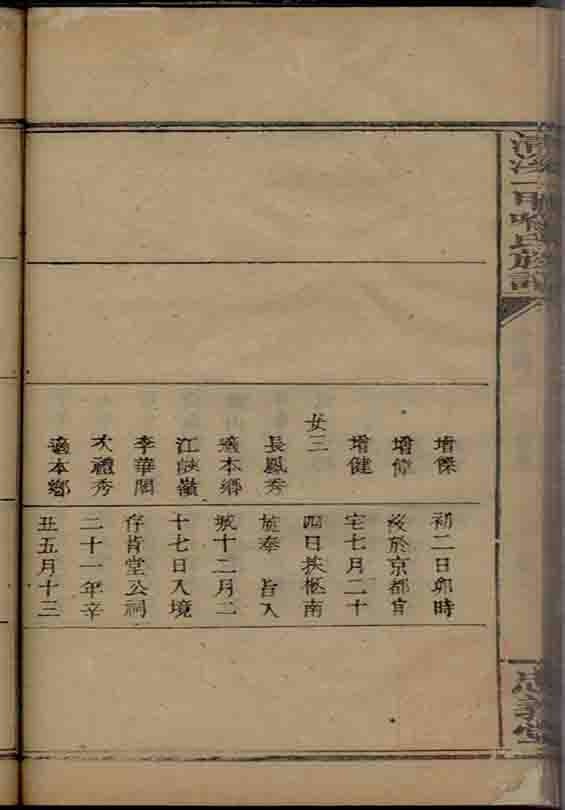 氏族譜
忠義堂
增傑
增偉
增健
女三
長鳳秀
適本鄉
江嶺
李華閣
次禮秀
適本鄉
初二日卯時
歿於京都官
宅七月二十
四日扶柩南
旋奉 旨入
城十二月二
十七日入境
肯堂公祠
二十一年辛
丑五月十三